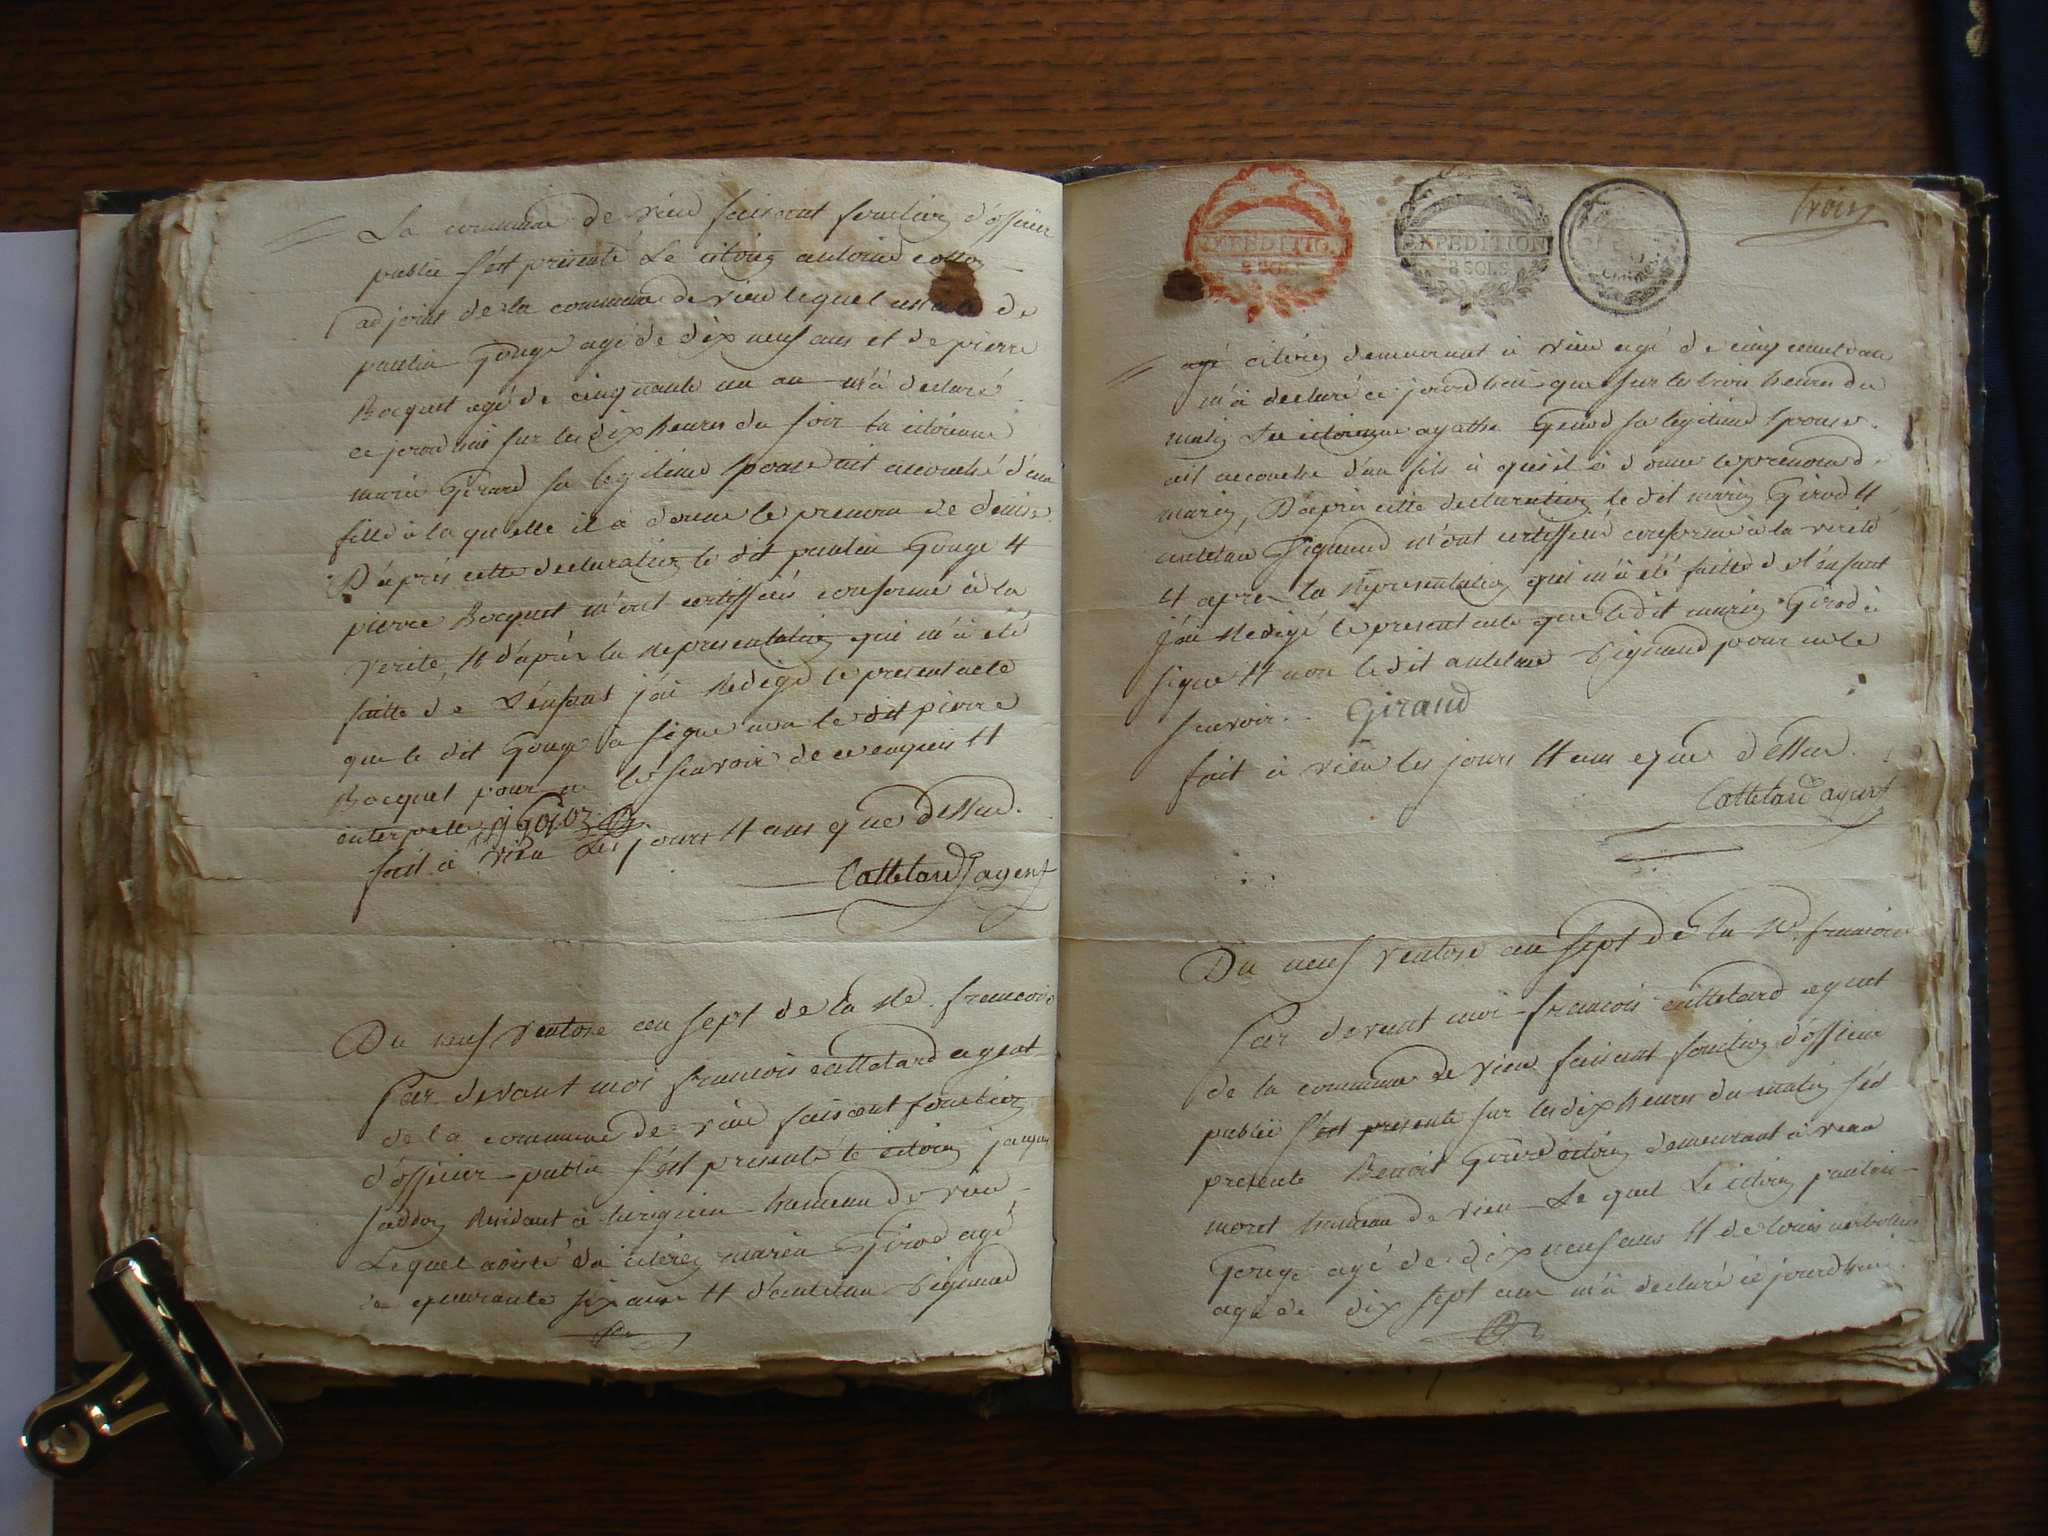 La commune de vieu faisant fonction d'officier
public s'est présenté le citoien antoine
adjoint de la commune de vieu lequel assisté de
paulin Gouge agé de dix neuf ans et de pierre
Bocquet agé de cinquante un an m'a declaré
ce jourdhui sur les dix heures du soir la citoienne
marie Gerard sa legitime epouse ait accouché d'une
fille à laquelle il a donne le prenom de denise
D'après cette declaration le dit paulin Gouge et
pierre Bocquet m'ont certiffiés conforme à la
verité, et d'après la representation qui m'a été
faitte de l'enfant j'ai redigé le present acte
que le dit Gouge a signe non le dit pierre
Bocquet pour ne le scavoir de ce enquis et
fait à vieu les jours et ans que dessus.
Cattelard agent
Du neuf ventose an sept de la Re. francoise
Par devant moi francois cattelard agent
de la commune de vieu faisant fonction
d'officier public s'est présenté le citoien
residant à hameau de vieu
Lequel assisté du citoien marin Girod agé
de quarante six ans et d'antelme Vignaud
EXPEDITION
8 SOLS
EXPEDITION
8 SOLS
trois
agé citoien demeurant à vieu agé de cinquante ans
m'a declaré ce jourdhui que sur les trois heures du
matin La citoienne agathe Gerard sa legitime epouse
ait accouché d'un fils à qui il a donne le prenom de
marin, D'après cette declaration le dit marin Girod et
antelme Vignaud m'ont certiffiés conforme à la verité
et apres la representation qui m'a été faitte de l'enfant
j'ai redigé le present acte que le dit marin Girod à
signe et non le dit antelme Vignaud pour ne le
scavoir. Giraud
fait à vieu les jours et ans que dessus.
Cattelard agent
Du neuf ventose an sept de la Re. francoise
Par devant moi francois cattelard agent
de la commune de vieu faisant fonction d'officier
public s'est presente sur les dix heures du matin s'est
presente Benoit Girard citoien demeurant à
hameau de vieu Le quel Le citoien paulin
Gouge agé de dix neuf ans et de louis
agé de dix sept ans m'a declaré ce jourdhui